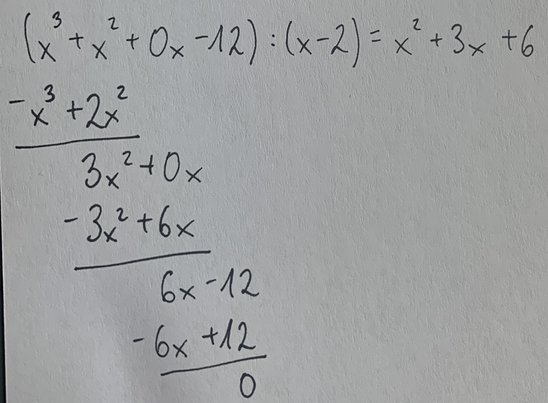 (x³ + x² + 0x - 12) : (x - 2) = x² + 3x + 6
- x³ + 2x²
3x² + 0x
- 3x² + 6x
6x - 12
- 6x + 12
0